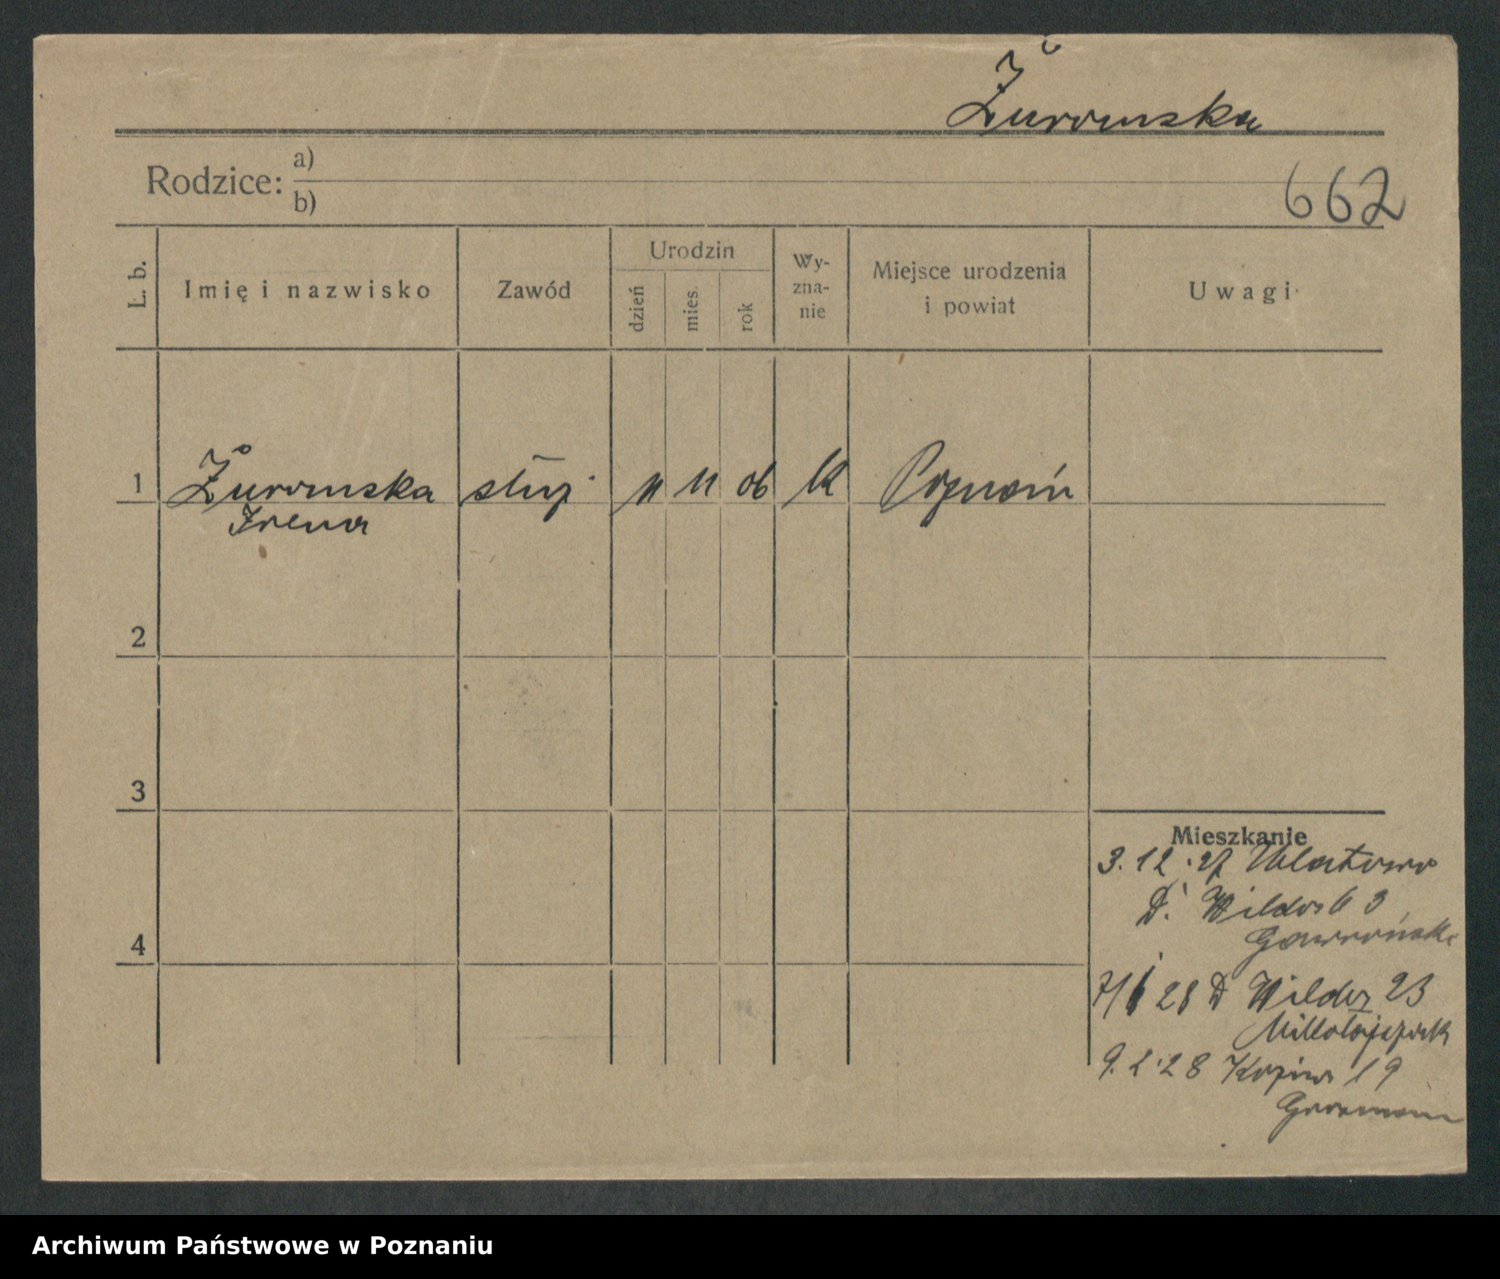 Żuromska
Rodzice: a)
b)
662
L. b.
Imię i nazwisko
Zawód
Urodzin
dzień
mies.
rok
Wy-
zna-
nie
Miejsce urodzenia
i powiat
Uwagi
1
Żuromska służ. 11 11 06 k Poznań
Irena
2
3
4
Mieszkanie
3.12.27
D. Wilda 63
Gawrońska
28 D Wilda 23
Mikołajczak
9.2.28 19
Archiwum Państwowe w Poznaniu